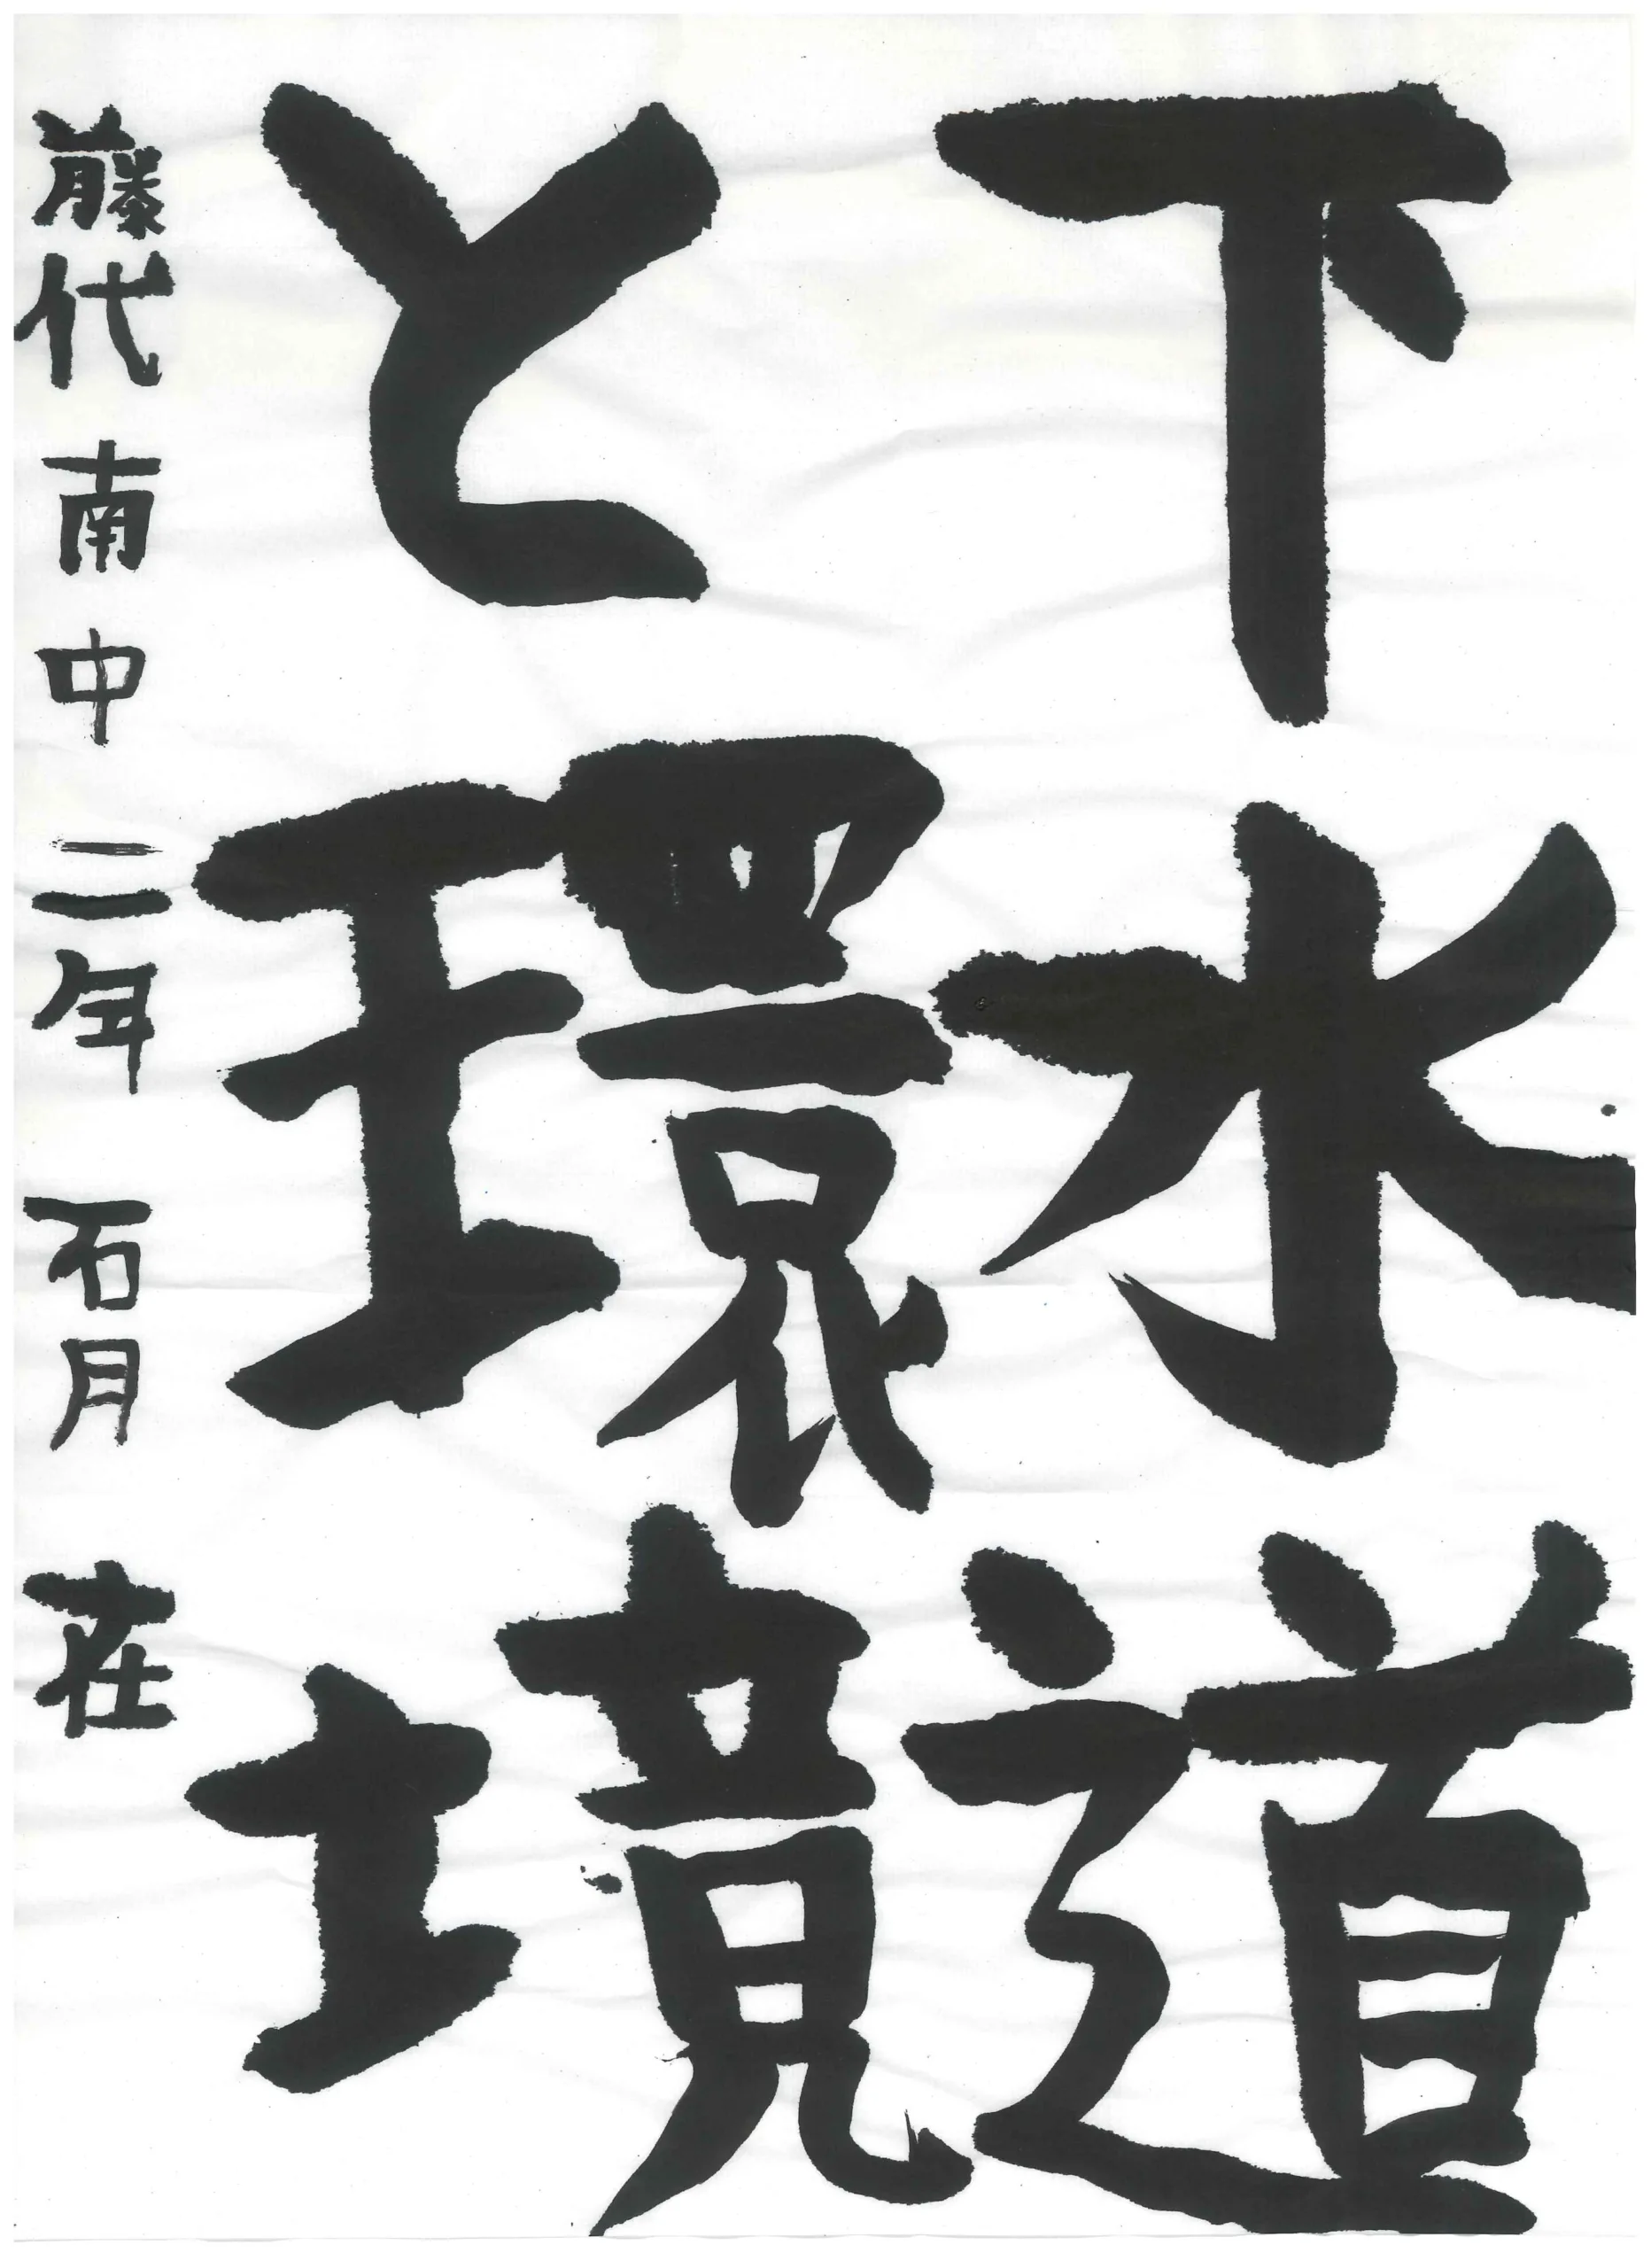 下水道
と環境
藤代南中 二年 石月 在